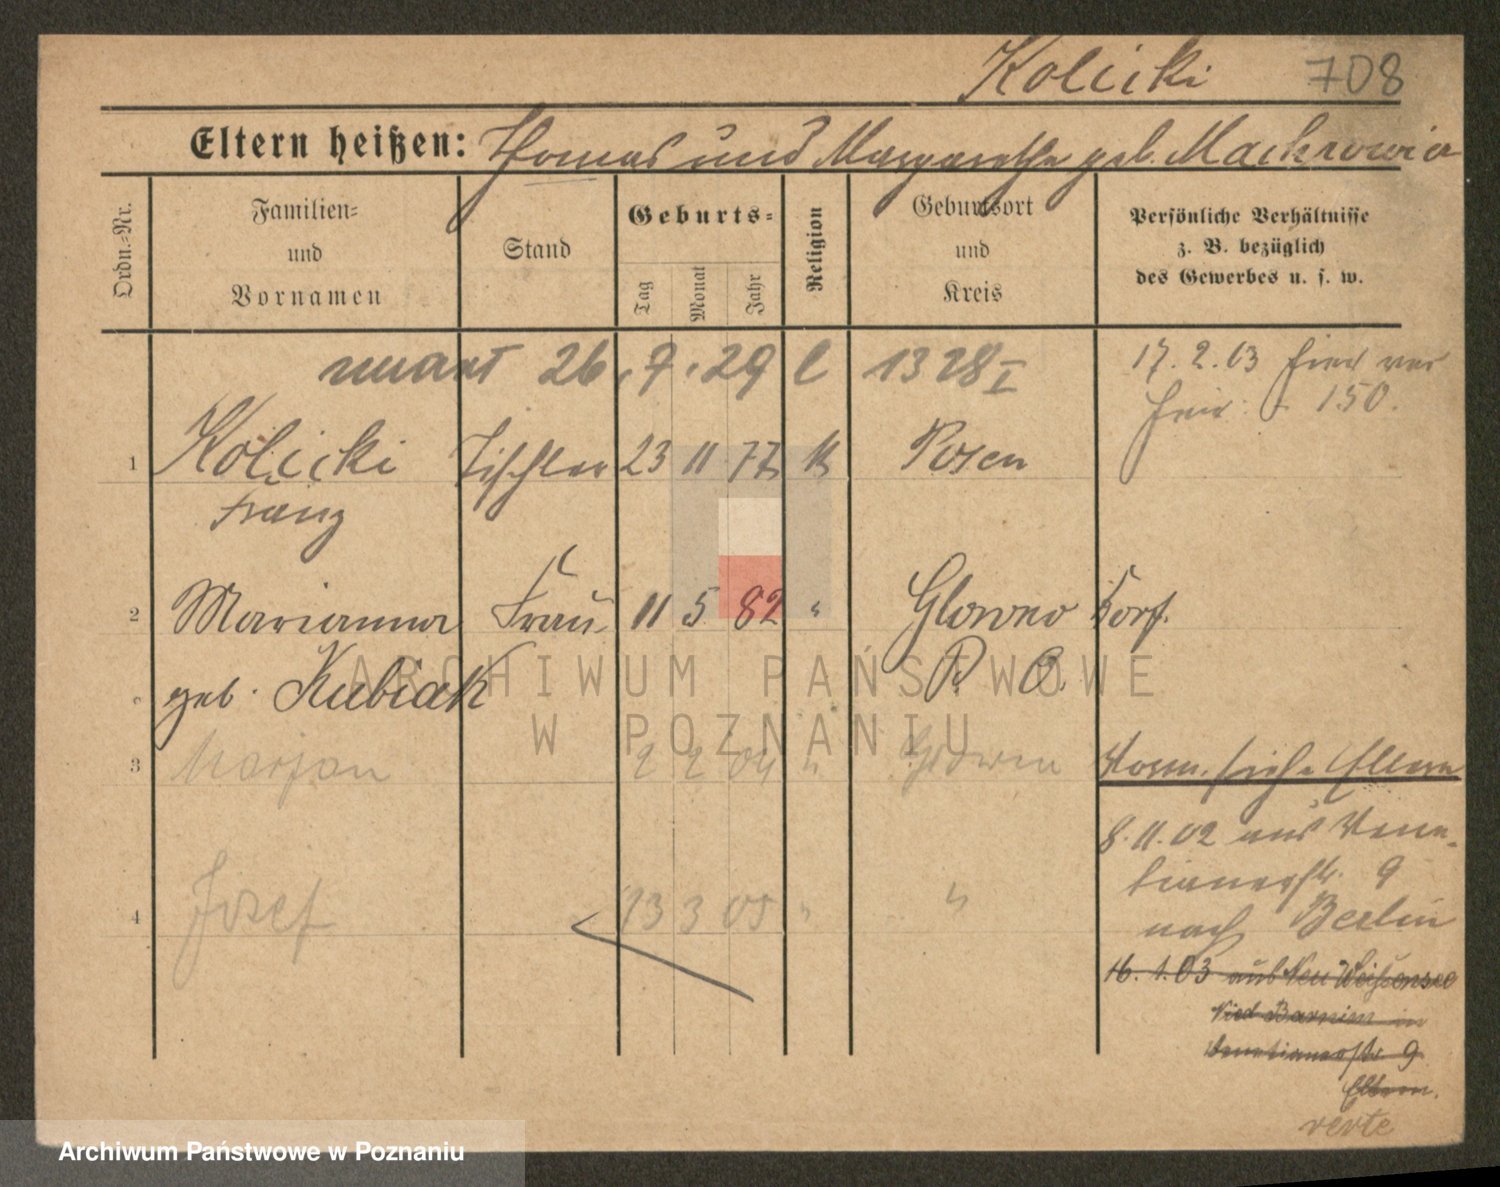 Kolicki 708
Eltern heißen: Thomas und Margarethe geb. Mackrowia
Ordn.-Nr.
Familien-
und
Vornamen
Stand
Geburts-
Tag
Monat
Jahr
Religion
Geburtsort
und
Kreis
Persönliche Verhältnisse
z. B. bezüglich
des Gewerbes u. s. w.
26. 9. 29 1328 I
17. 2. 03
150.
1 Kolicki Tischler 23 11 77 k Posen
Franz
2 Marianna Frau 11 5 82 " Glowno Dorf.
geb. Kubiak P. O.
3 Marjan 2 2 04 " Glowno
Vorm. siehe Eltern
8. 11. 02 aus Vene-
tianerstr. 9
nach Berlin
4 Josef 13 3 05 " "
16. 1. 03 aus Neu Weißensee
Nied Barnim in
Venetianerstr. 9
Eltern.
verte
ARCHIWUM PAŃSTWOWE
W POZNANIU
Archiwum Państwowe w Poznaniu